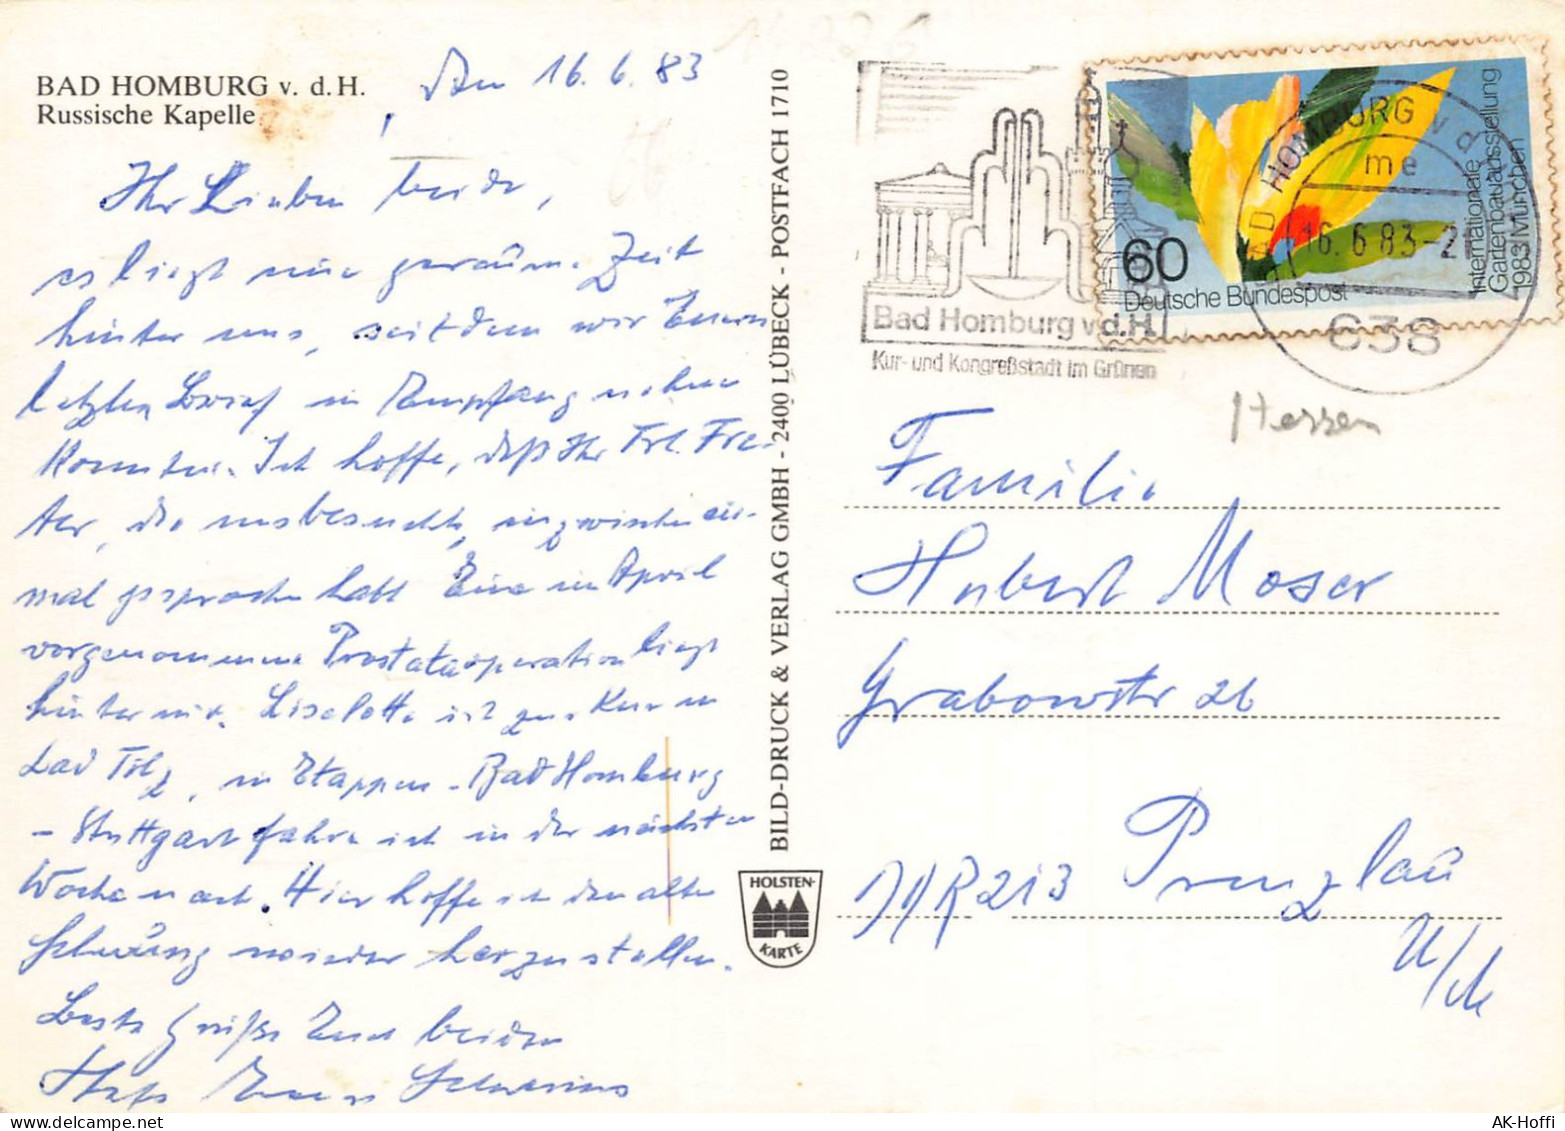 BAD HOMBURG v. d. H.
Russische Kapelle
Den 16.6.83
Ihr Lieben beide,
es liegt eine geraume Zeit
hinter uns, seitdem wir Euren
letzten Brief in Empfang nehmen
konnten. Ich hoffe, daß Ihr Frl. Fre-
ter, die uns besuchte, inzwischen ein-
mal gesprochen habt. Eine im April
vorgenommene Prostataoperation liegt
hinter mir. Liselotte ist zur Kur in
Bad Tölz, in Etappen - Bad Homburg
- Stuttgart fahre ich in der nächsten
Woche nach. Hier hoffe ich den alten
Schwung wieder herzustellen.
Beste Grüße Euch beiden
Stets Euer
BILD-DRUCK & VERLAG GMBH - 2400 LÜBECK - POSTFACH 1710
HOLSTEN-
KARTE
Bad Homburg v.d.H.
Kur- und Kongreßstadt im Grünen
60
Deutsche Bundespost
Internationale
Gartenbauausstellung
1983 München
BAD HOMBURG v d H
me
16.6.83-2
638
Hessen
Familie
Hubert Moser
Grabowstr 26
DDR 213 Prenzlau
U/M
AK-Hoffi